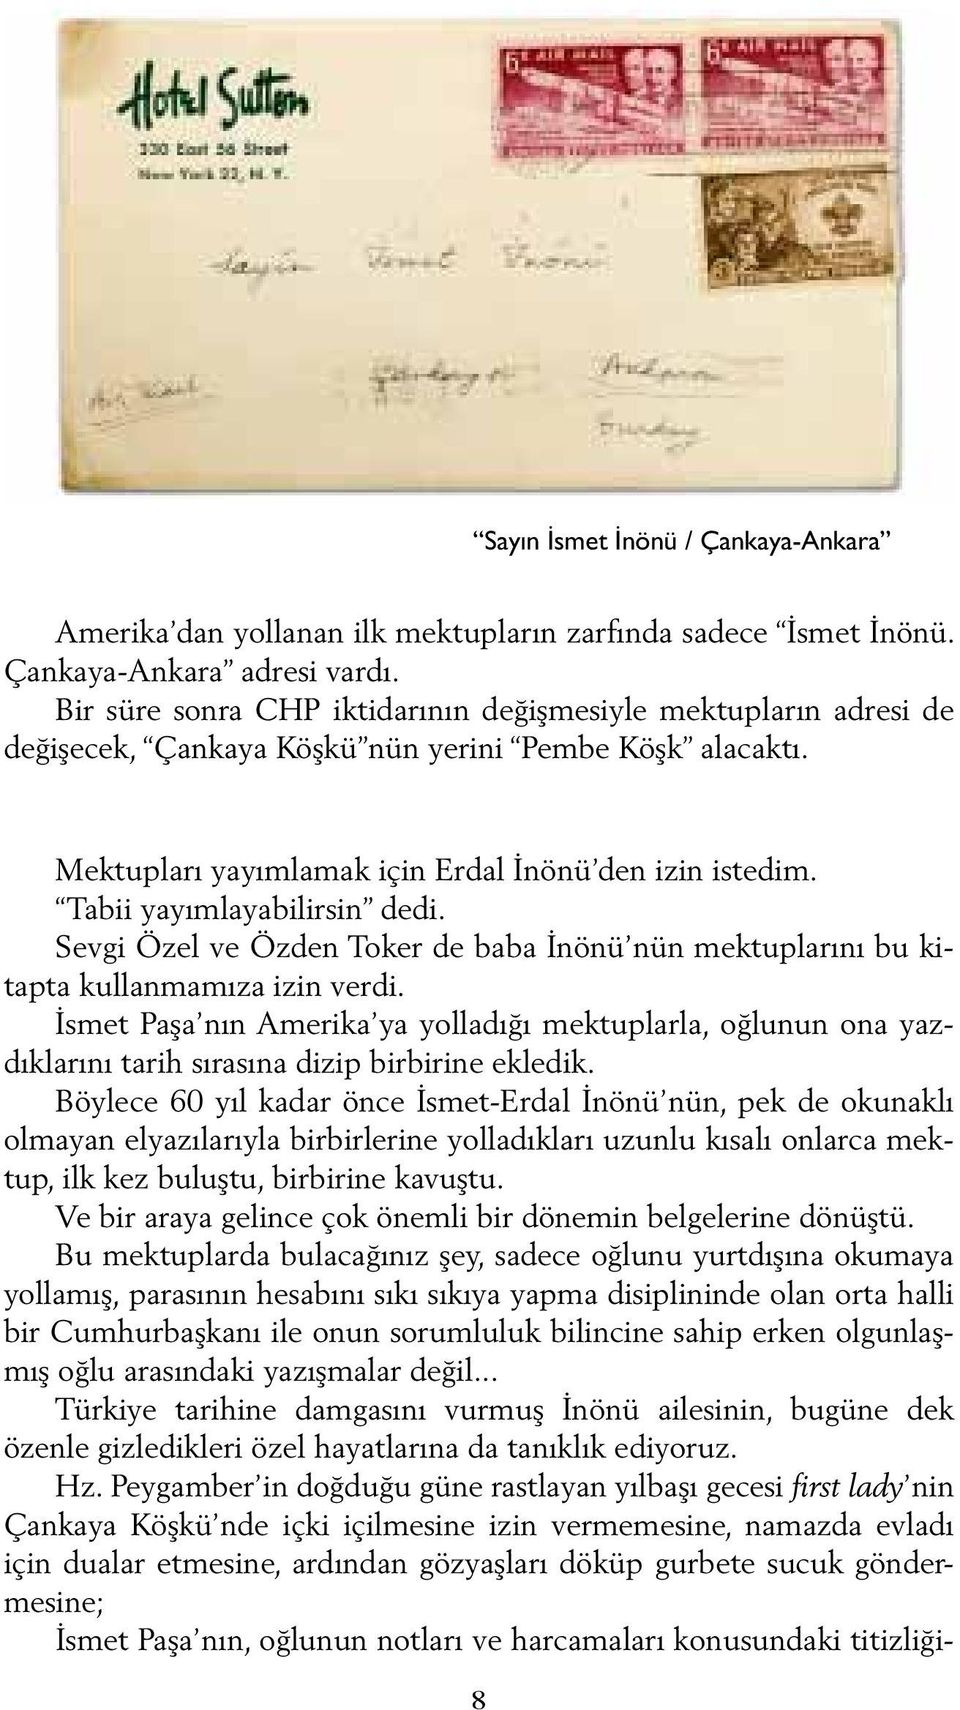 Hotel Sutton
330 East 56 Street
New York 22, N. Y.
6¢ AIR MAIL
6¢ AIR MAIL
Sayin İsmet İnönü
Air Mail
Çankaya
Ankara
Turkey
“Sayın İsmet İnönü / Çankaya-Ankara”
Amerika’dan yollanan ilk mektupların zarfında sadece “İsmet İnönü.
Çankaya-Ankara” adresi vardı.
Bir süre sonra CHP iktidarının değişmesiyle mektupların adresi de
değişecek, “Çankaya Köşkü”nün yerini “Pembe Köşk” alacaktı.
Mektupları yayımlamak için Erdal İnönü’den izin istedim.
“Tabii yayımlayabilirsin” dedi.
Sevgi Özel ve Özden Toker de baba İnönü’nün mektuplarını bu ki-
tapta kullanmamıza izin verdi.
İsmet Paşa’nın Amerika’ya yolladığı mektuplarla, oğlunun ona yaz-
dıklarını tarih sırasına dizip birbirine ekledik.
Böylece 60 yıl kadar önce İsmet-Erdal İnönü’nün, pek de okunaklı
olmayan elyazılarıyla birbirlerine yolladıkları uzunlu kısalı onlarca mek-
tup, ilk kez buluştu, birbirine kavuştu.
Ve bir araya gelince çok önemli bir dönemin belgelerine dönüştü.
Bu mektuplarda bulacağınız şey, sadece oğlunu yurtdışına okumaya
yollamış, parasının hesabını sıkı sıkıya yapma disiplininde olan orta halli
bir Cumhurbaşkanı ile onun sorumluluk bilincine sahip erken olgunlaş-
mış oğlu arasındaki yazışmalar değil...
Türkiye tarihine damgasını vurmuş İnönü ailesinin, bugüne dek
özenle gizledikleri özel hayatlarına da tanıklık ediyoruz.
Hz. Peygamber’in doğduğu güne rastlayan yılbaşı gecesi first lady’nin
Çankaya Köşkü’nde içki içilmesine izin vermemesine, namazda evladı
için dualar etmesine, ardından gözyaşları döküp gurbete sucuk gönder-
mesine;
İsmet Paşa’nın, oğlunun notları ve harcamaları konusundaki titizliği-
8